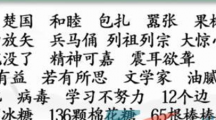 楚国 和睦 包扎 嚣张 果
放矢 兵马俑 列祖列宗 大惊
没了 精神可嘉 震耳欲聋
有益 若有所思 文学家 油腻
病毒 学习不努力 12个边
冰糖 136颗棉花糖 65根棒棒